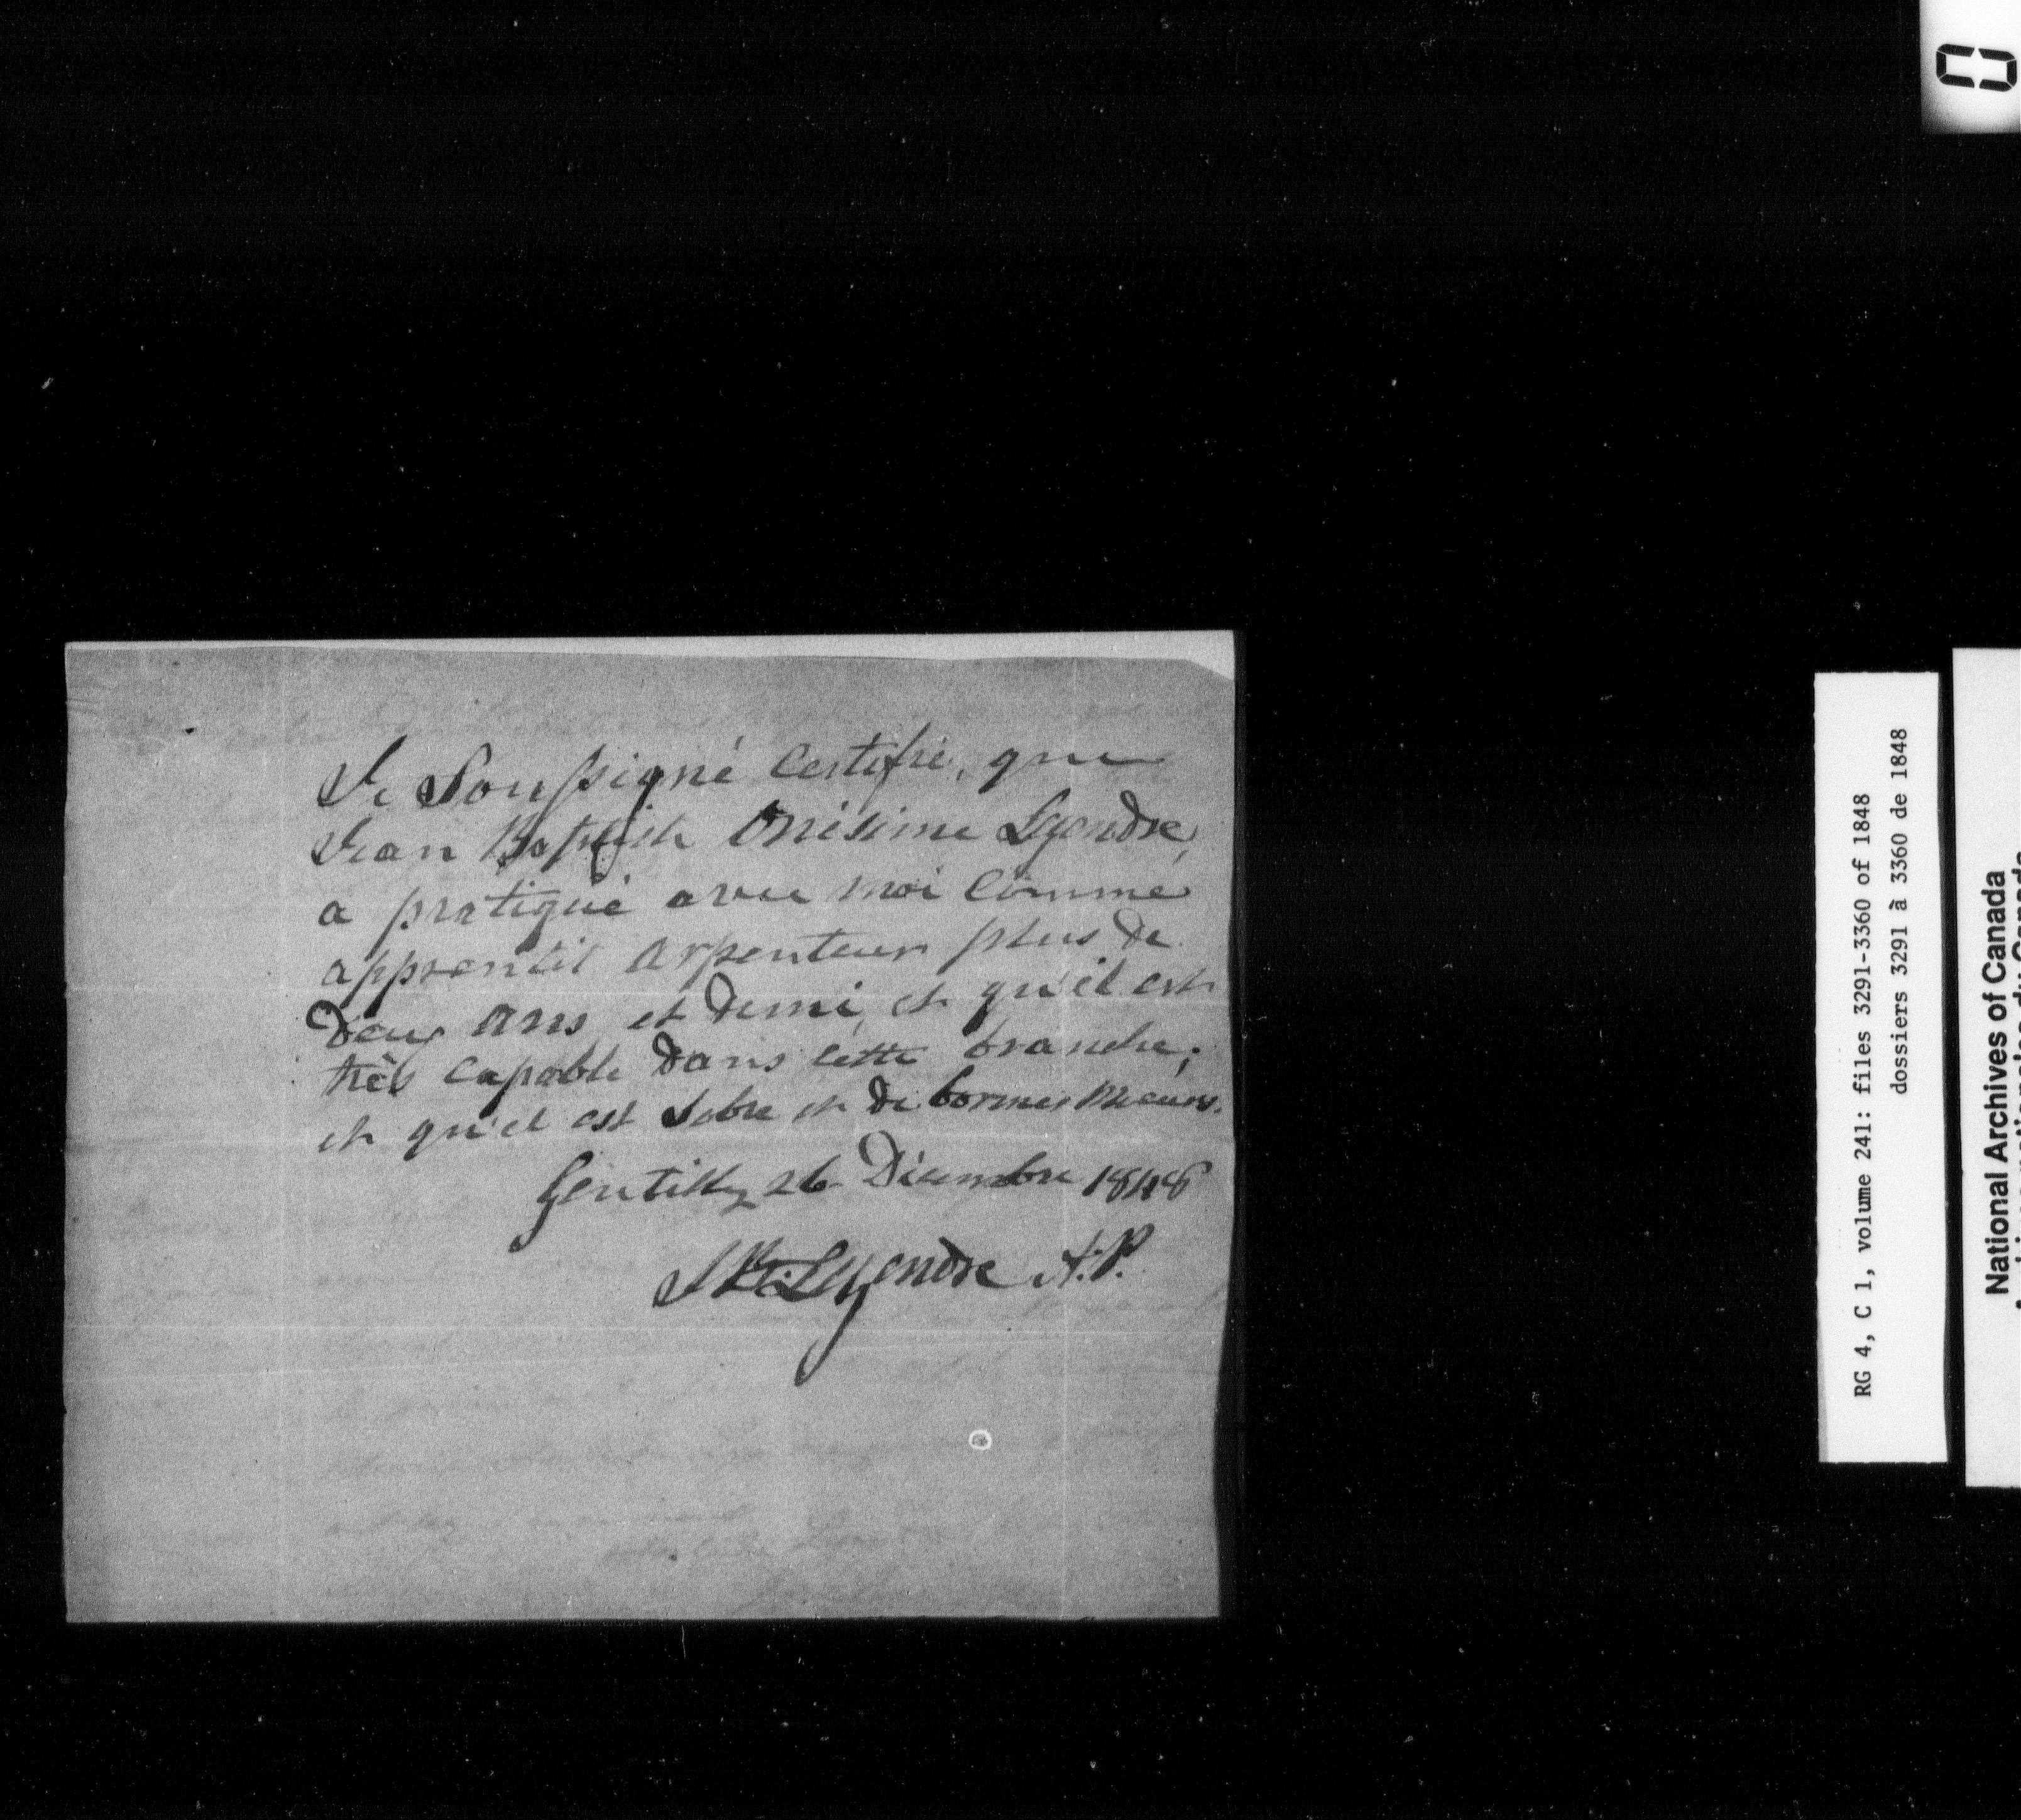 Je Soussigné certifie, que
Jean Baptiste Onisime Legendre,
a pratiqué avec moi comme
apprentit arpenteur plus de
deux ans et demi, et qu'il est
très capable dans cette branche;
et qu'il est sobre et de bonnes meurs.
Gentilly 26 Décembre 1848
J Bte Legendre A.P.
RG 4, C 1, volume 241: files 3291-3360 of 1848
dossiers 3291 à 3360 de 1848
National Archives of Canada
0